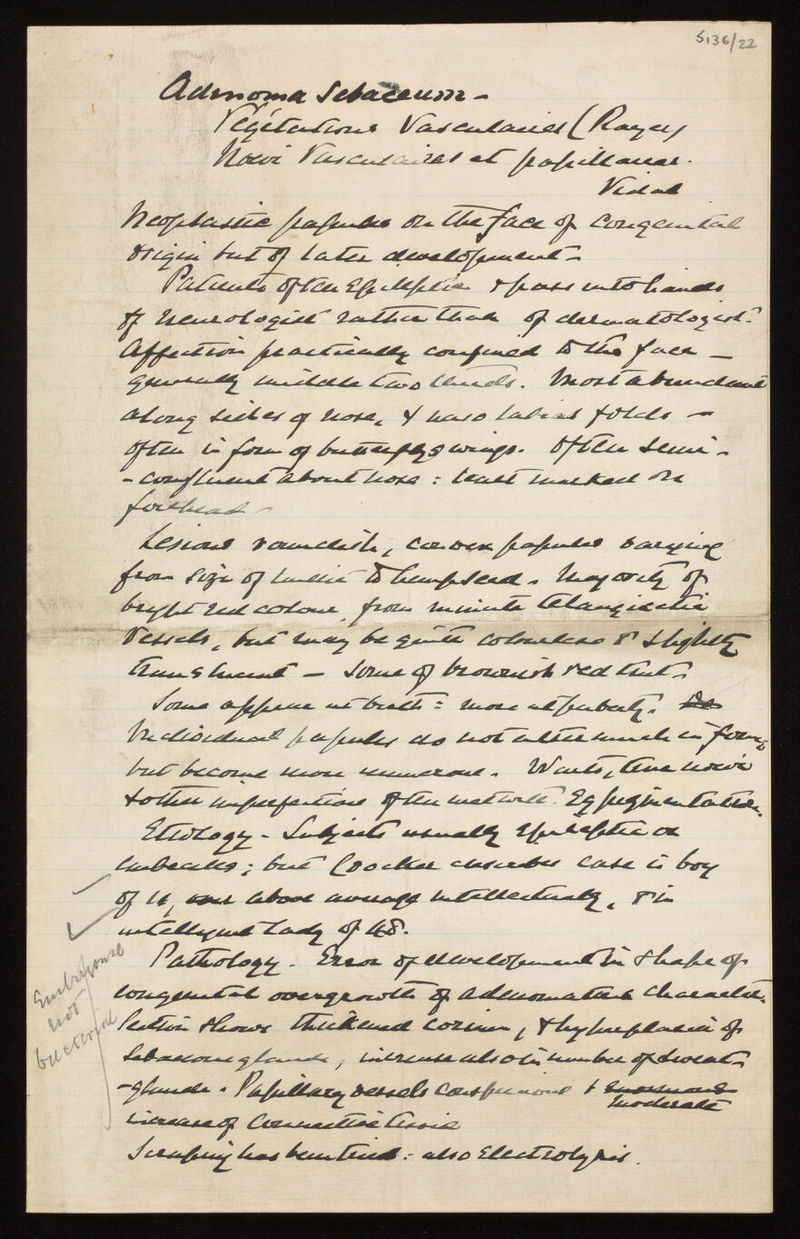 S136/22
Adenoma Sebaceum -
Végétations Vasculaires (Rayer)
Naevi Vasculaires et papillaires.
Vidal
Neoplastic papules on the face of congenital
origin but of later development -
Patients often Epileptic & pass into hands
of neurologist rather than of dermatologist.
Affection practically confined to the face -
generally middle two thirds. Most abundant
along sides of nose, & naso labial folds -
often in form of butterfly's wings. Often semi-
-confluent about nose : least marked on
forehead -
Lesions roundish, convex papules varying
from size of millet to hempseed. Majority of
bright red colour, from minute telangiectic
vessels, but may be quite colourless & slightly
translucent - some of brownish red tint.
Some appear at birth : more at puberty.
Individual papules do not alter much in form,
but become more numerous. Warts, true naevi
& other imperfections often met with. Eg pigmentation.
Etiology - Subjects usually Epileptic or
imbeciles ; but Crocker describes case in boy
of 11, above average intellectually, & in
intelligent lady of 48.
Pathology. Error of development in shape of
congenital overgrowth of adenomatous character.
Section shows thickened corium, & hyperplasia of
sebaceous glands, increase also in number of sweat-
-glands. Papillary vessels conspicuous &
moderate
increase of connective tissue
Scraping has been tried : also Electrolysis.
not
bacterial